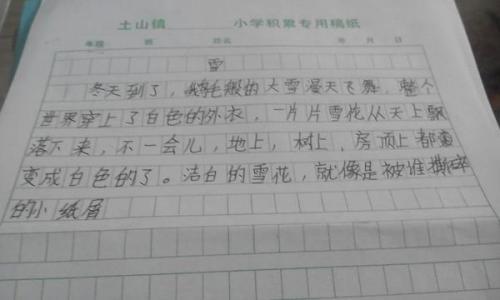 土山镇 小学积累专用稿纸
年级 班 姓名 年 月 日
雪
冬天到了，鹅毛般的大雪漫天飞舞，整个
世界穿上了白色的外衣，一片片雪花从天上飘
落下来，不一会儿，地上，树上，房顶上都
变成白色的了。洁白的雪花，就像是被谁撕碎
的小纸屑